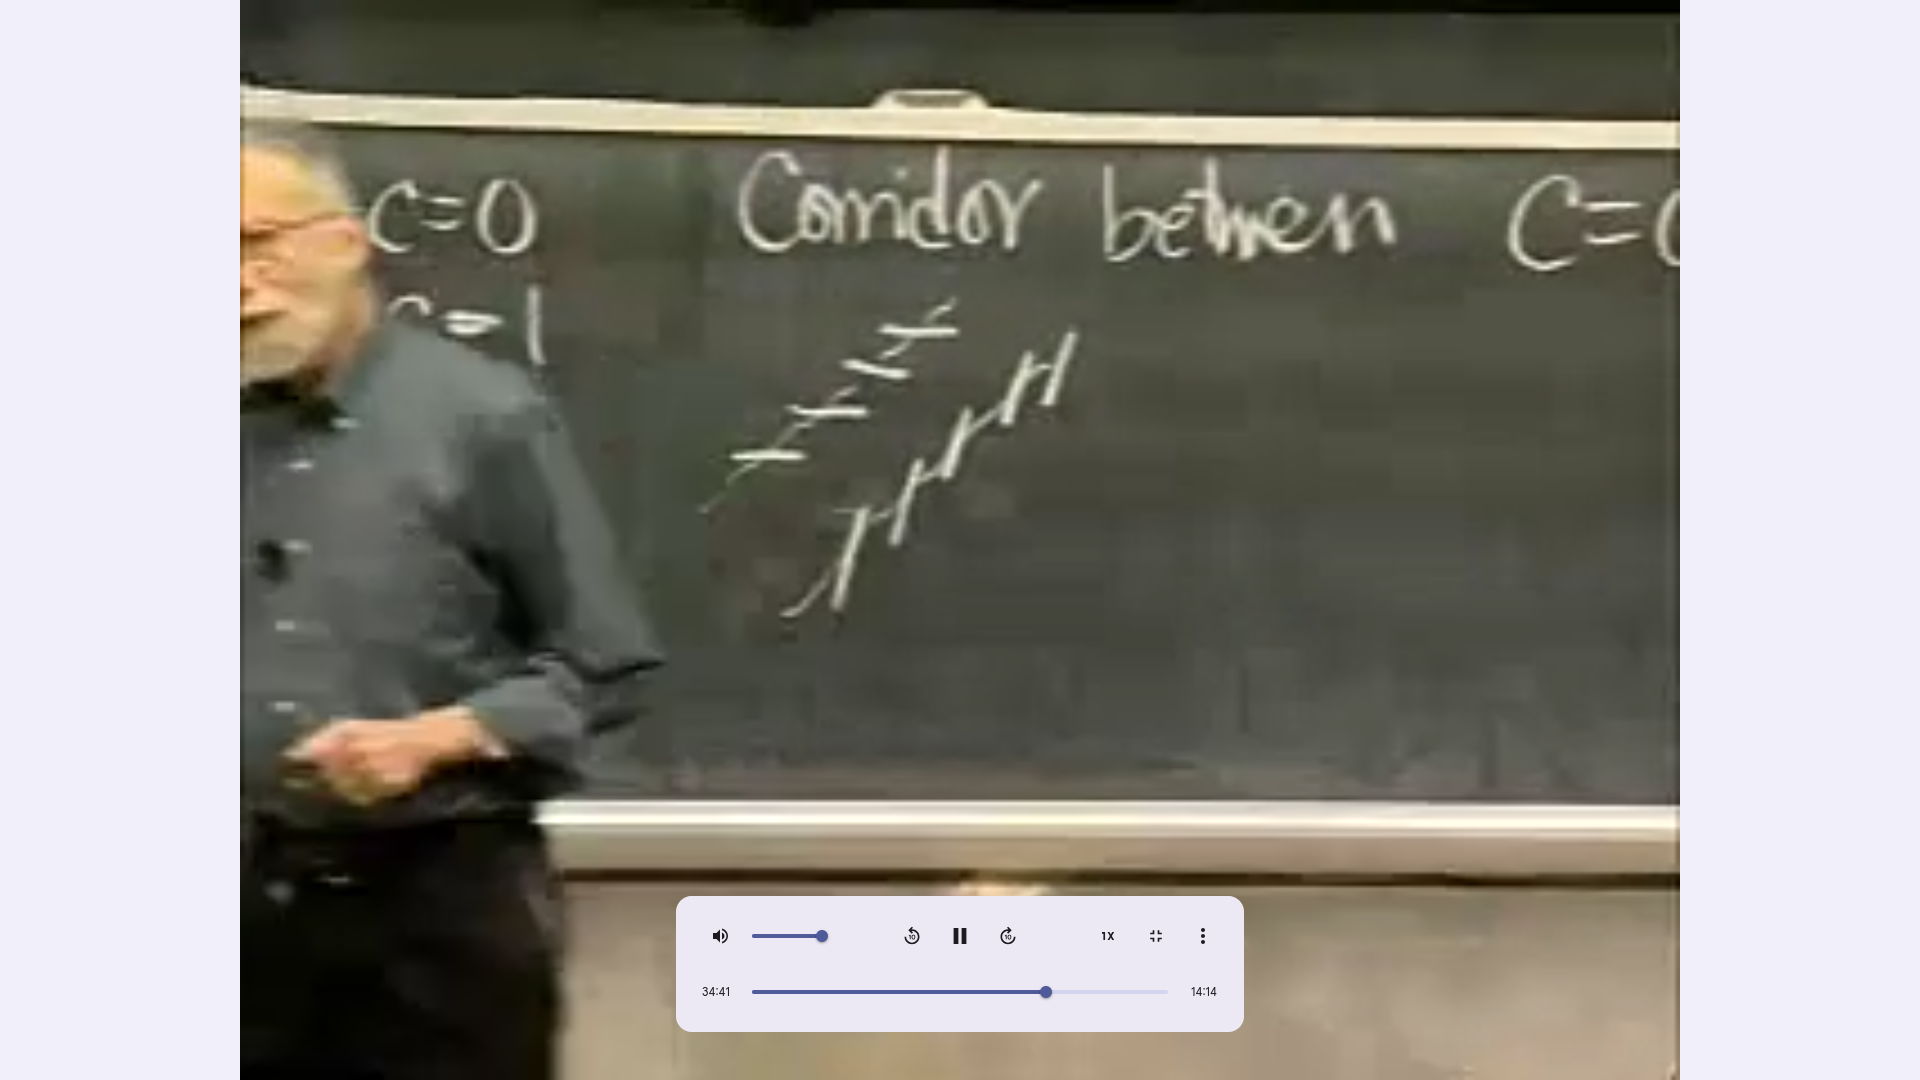 c=0
Corridor between C=0
c=1
1X
34:41
14:14